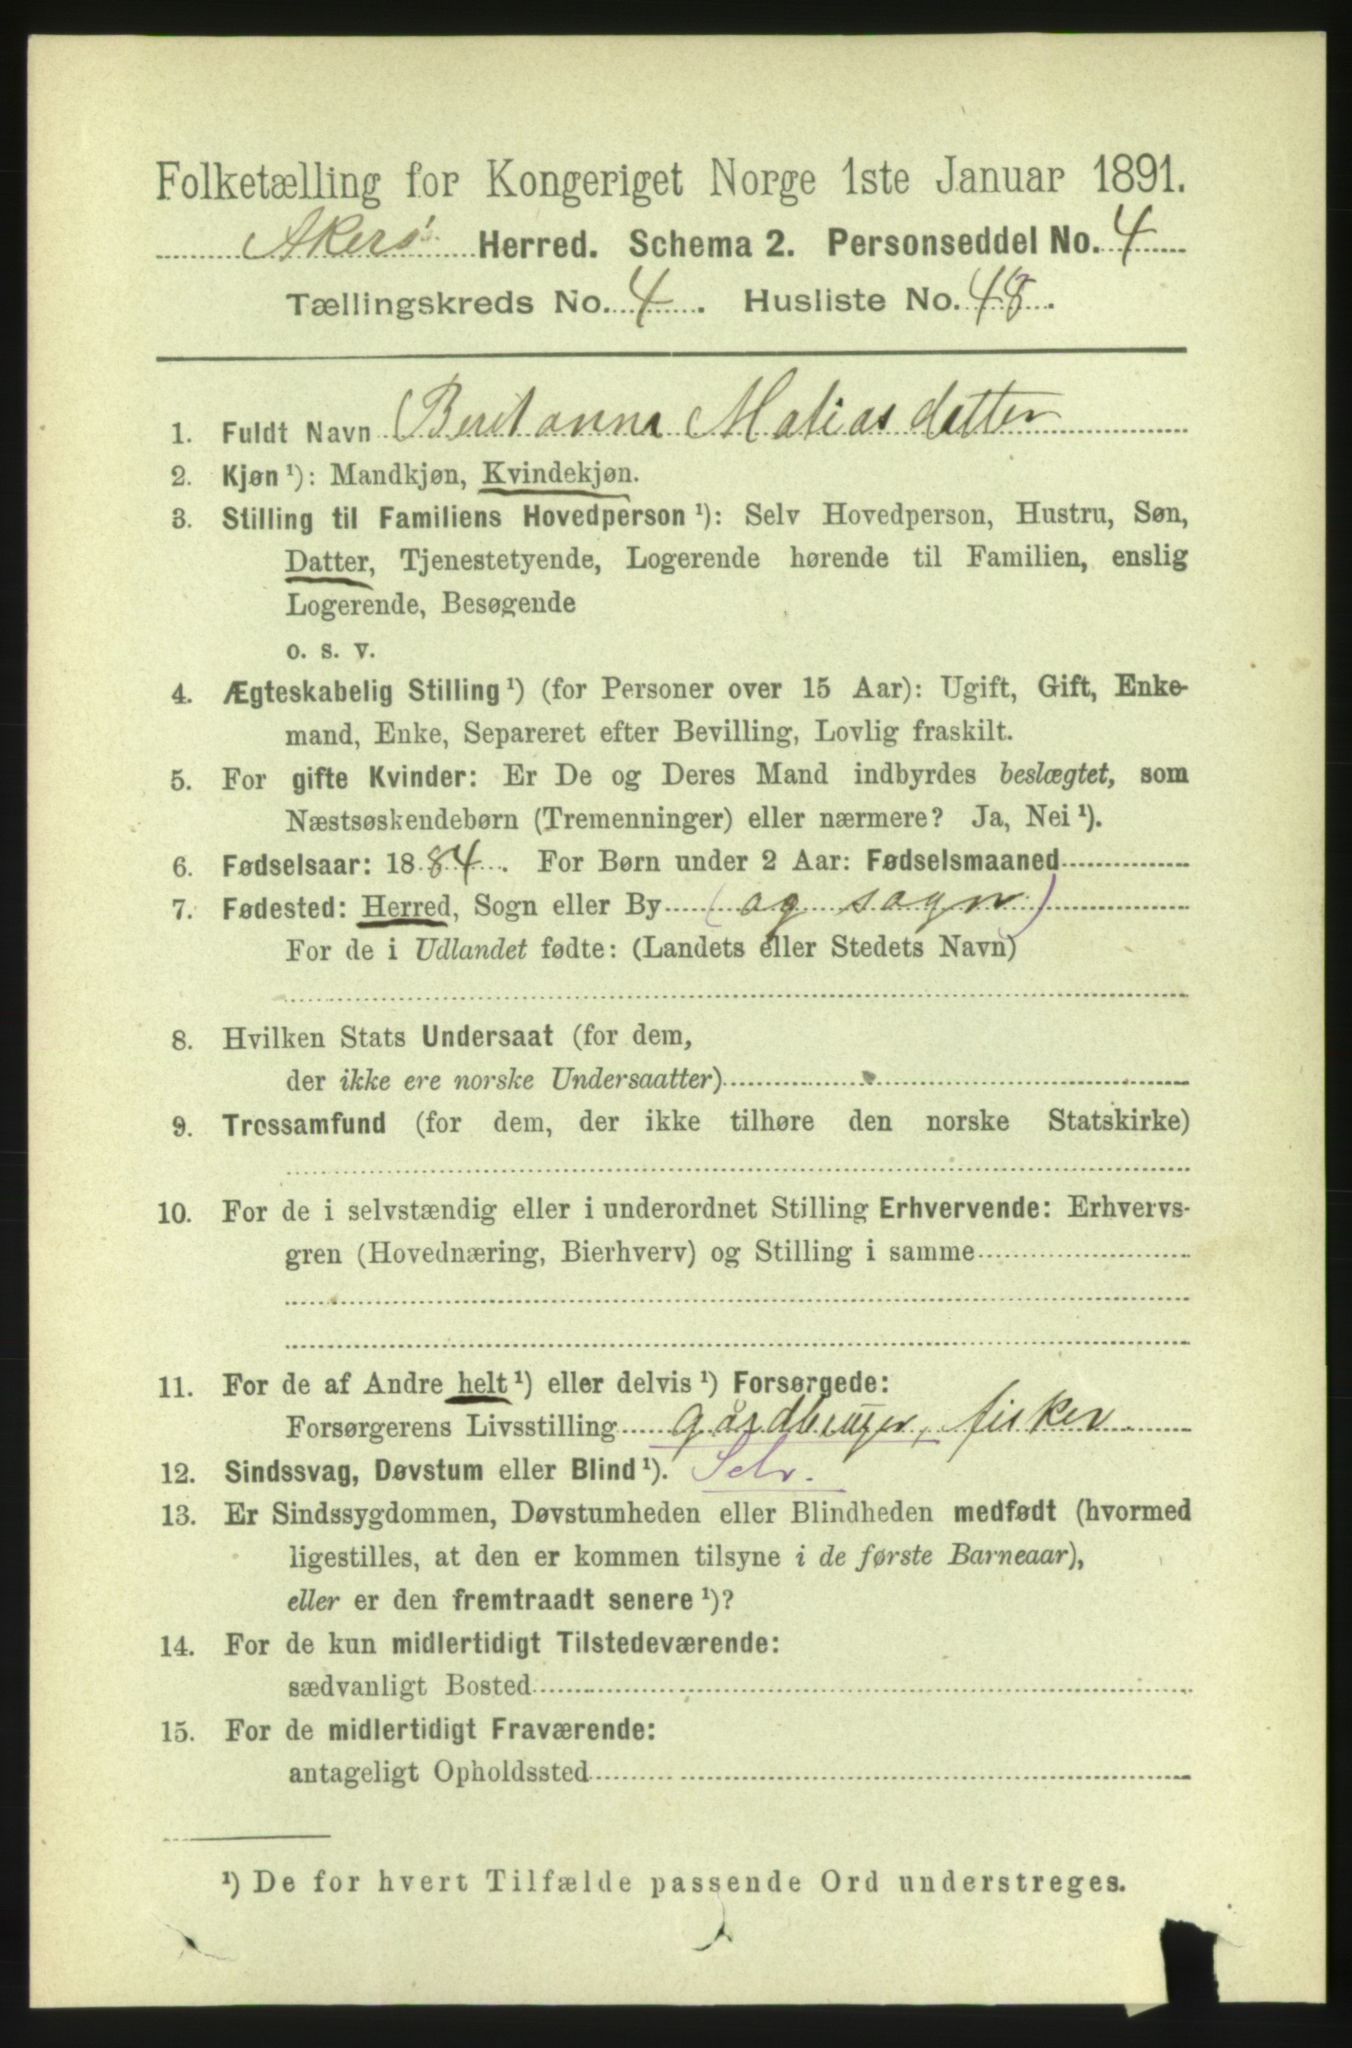 Folketælling for Kongeriget Norge 1ste Januar 1891.
Akerø Herred. Schema 2. Personseddel No. 4
Tællingskreds No. 4. Husliste No. 48.
1. Fuldt Navn Beret anna Matias datter
2. Kjøn ¹): Mandkjøn, Kvindekjøn.
3. Stilling til Familiens Hovedperson ¹): Selv Hovedperson, Hustru, Søn,
Datter, Tjenestetyende, Logerende hørende til Familien, enslig
Logerende, Besøgende
o. s. v.
4. Ægteskabelig Stilling ¹) (for Personer over 15 Aar): Ugift, Gift, Enke-
mand, Enke, Separeret efter Bevilling, Lovlig fraskilt.
5. For gifte Kvinder: Er De og Deres Mand indbyrdes beslægtet, som
Næstsøskendebørn (Tremenninger) eller nærmere? Ja, Nei ¹).
6. Fødselsaar: 1884. For Børn under 2 Aar: Fødselsmaaned
7. Fødested: Herred, Sogn eller By (og sogn)
For de i Udlandet fødte: (Landets eller Stedets Navn)
8. Hvilken Stats Undersaat (for dem,
der ikke ere norske Undersaatter)
9. Trossamfund (for dem, der ikke tilhøre den norske Statskirke)
10. For de i selvstændig eller i underordnet Stilling Erhvervende: Erhvervs-
gren (Hovednæring, Bierhverv) og Stilling i samme
11. For de af Andre helt ¹) eller delvis ¹) Forsørgede:
Forsørgerens Livsstilling gårdbruger, fisker
12. Sindssvag, Døvstum eller Blind ¹). Selv.
13. Er Sindssygdommen, Døvstumheden eller Blindheden medfødt (hvormed
ligestilles, at den er kommen tilsyne i de første Barneaar),
eller er den fremtraadt senere ¹)?
14. For de kun midlertidigt Tilstedeværende:
sædvanligt Bosted
15. For de midlertidigt Fraværende:
antageligt Opholdssted
¹) De for hvert Tilfælde passende Ord understreges.